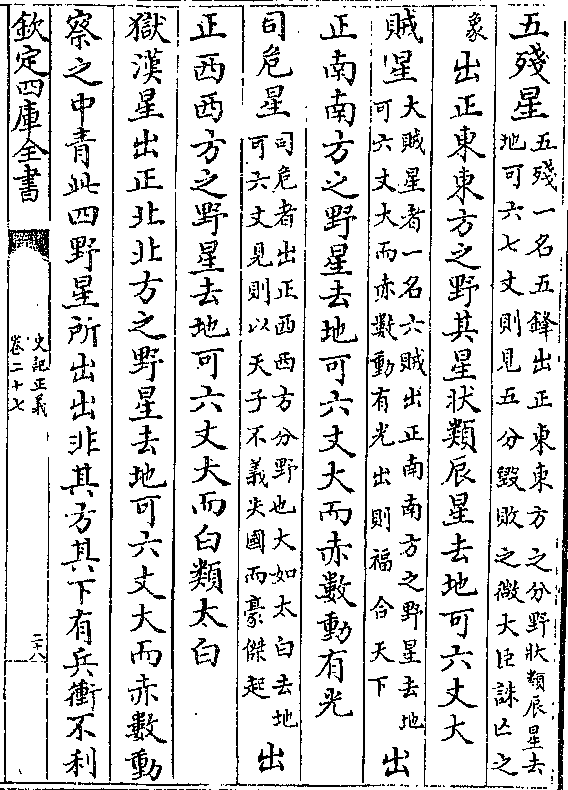 五殘星五殘一名五鋒出正東東方之分野狀類辰星去
地可六七丈則見五分毀敗之徵大臣誅亡之
象出正東東方之野其星狀類辰星去地可六丈大
賊星大賊星者一名六賊出正南南方之野星去地
可六丈大而赤數動有光出則福合天下出
正南南方之野星去地可六丈大而赤數動有光
司危星司危者出正西西方分野也大如太白去地
可六丈見則以天子不義失國而豪傑起出
正西西方之野星去地可六丈大而白類太白
獄漢星出正北北方之野星去地可六丈大而赤數動
察之中青此四野星所出出非其方其下有兵衝不利
欽定四庫全書
史記正義
卷二十七
二十八